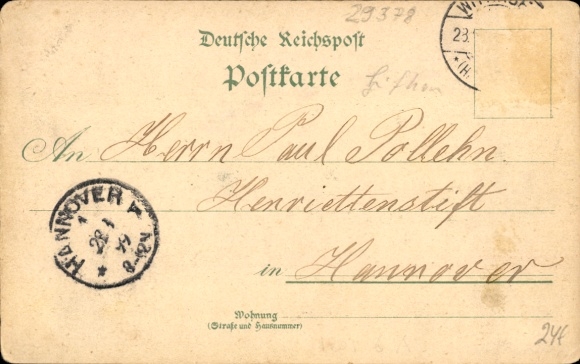 29378
Deutsche Reichspost
Postkarte
An Herrn Paul Pollehn.
Henriettenstift
in Hannover
HANNOVER
Wohnung
(Straße und Hausnummer)
24€